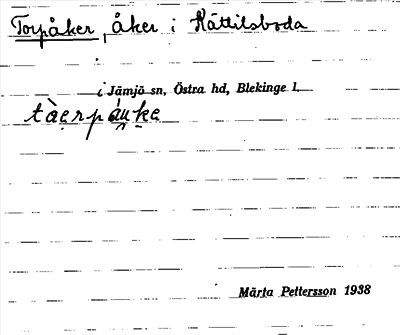 Torpåker, åker i Kättilsboda
i Jämjö sn, Östra hd, Blekinge l.
Märta Pettersson 1938